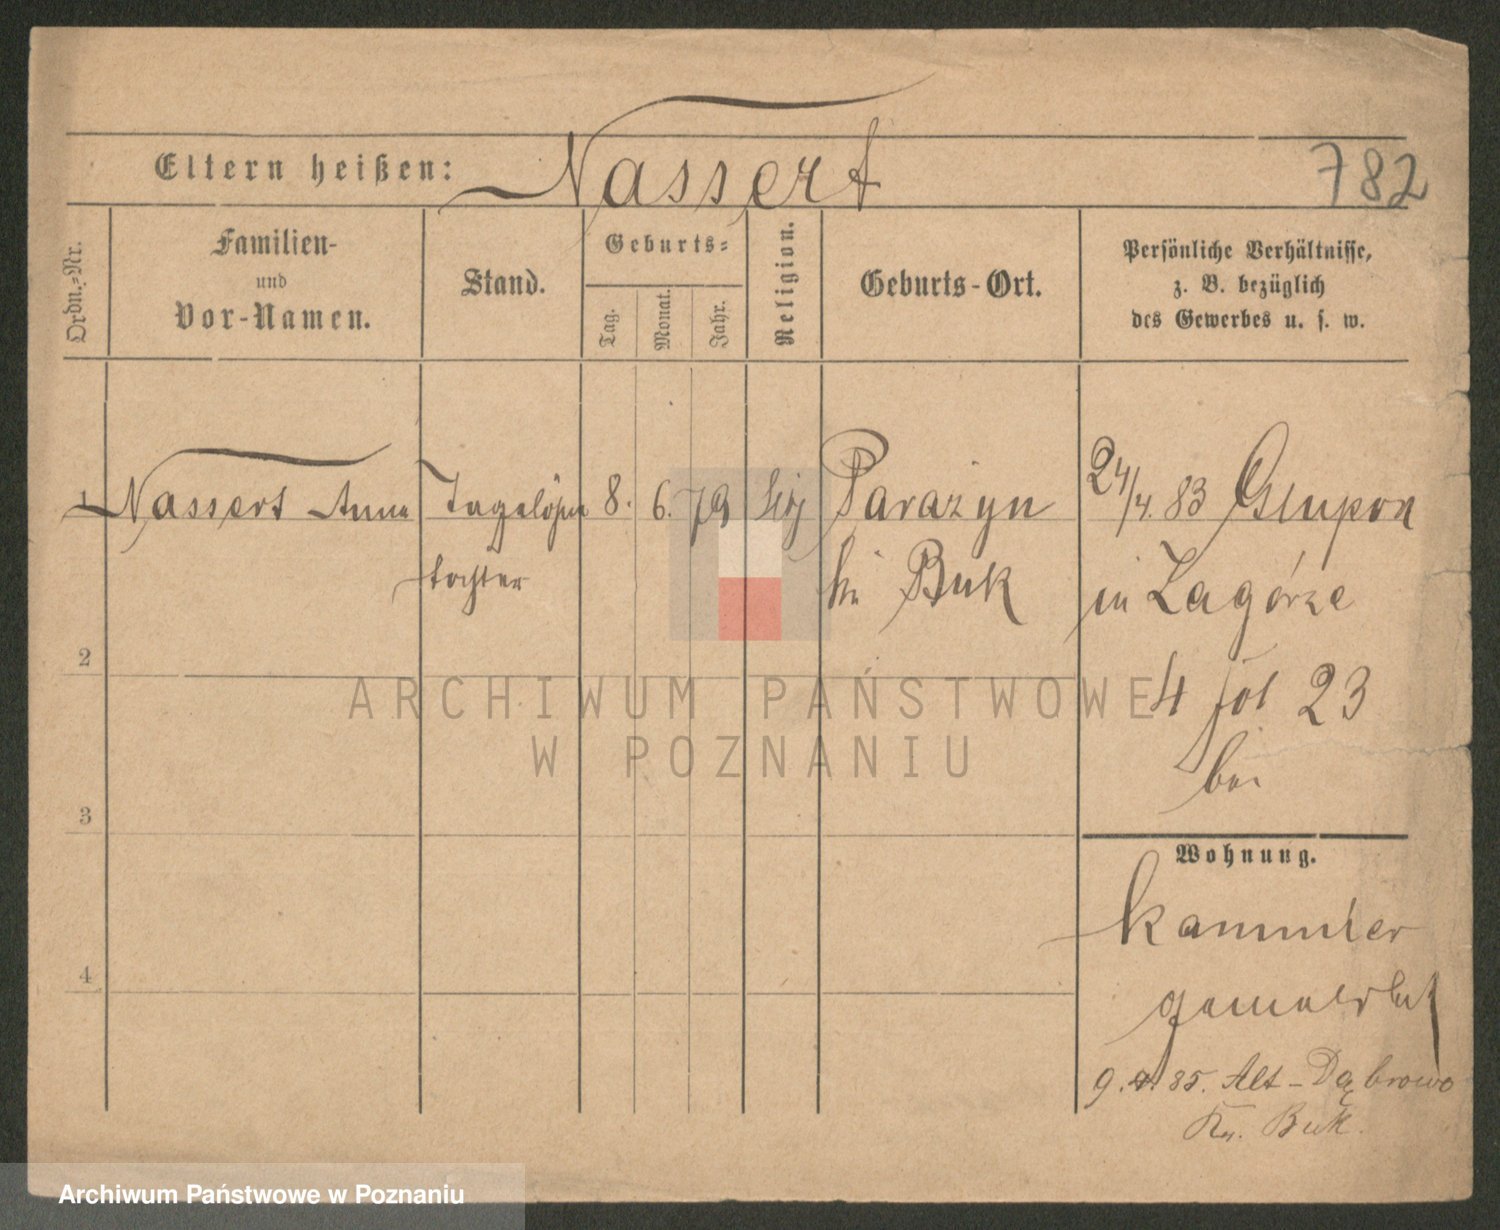 Eltern heißen: Nassert
782
Ordn.-Nr.
Familien-
und
Vor-Namen.
Stand.
Geburts-
Tag.
Monat.
Jahr.
Religion.
Geburts-Ort.
Persönliche Verhältnisse,
z. B. bezüglich
des Gewerbes u. s. w.
1 Nassert Anna
Tagelöhner
tochter
8. 6. 79
Parazyn
Kr. Buk
24/4. 83 Glupon
in Zagórze
4 23
bei
2
3
4
Wohnung.
Kammler
gemeldet
9.4.85. Alt-Dąbrowo
Kr. Buk.
ARCHIWUM PAŃSTWOWE
W POZNANIU
Archiwum Państwowe w Poznaniu